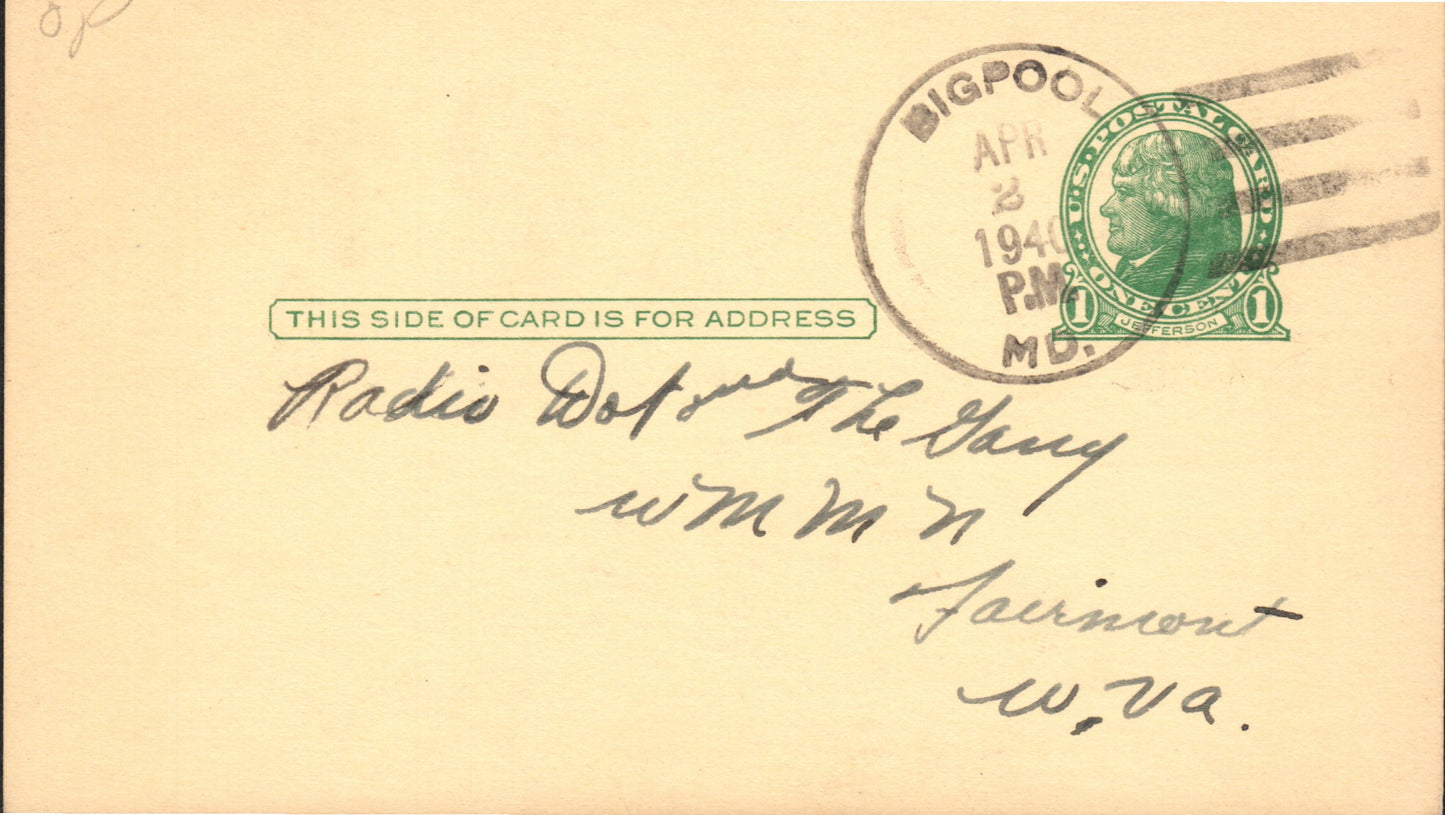 BIGPOOL
APR
2
1940
P.M.
MD.
U.S. POSTAL CARD
ONE CENT
1 JEFFERSON 1
THIS SIDE OF CARD IS FOR ADDRESS
Radio Dot and The Gang
WMMN
Fairmont
W. Va.